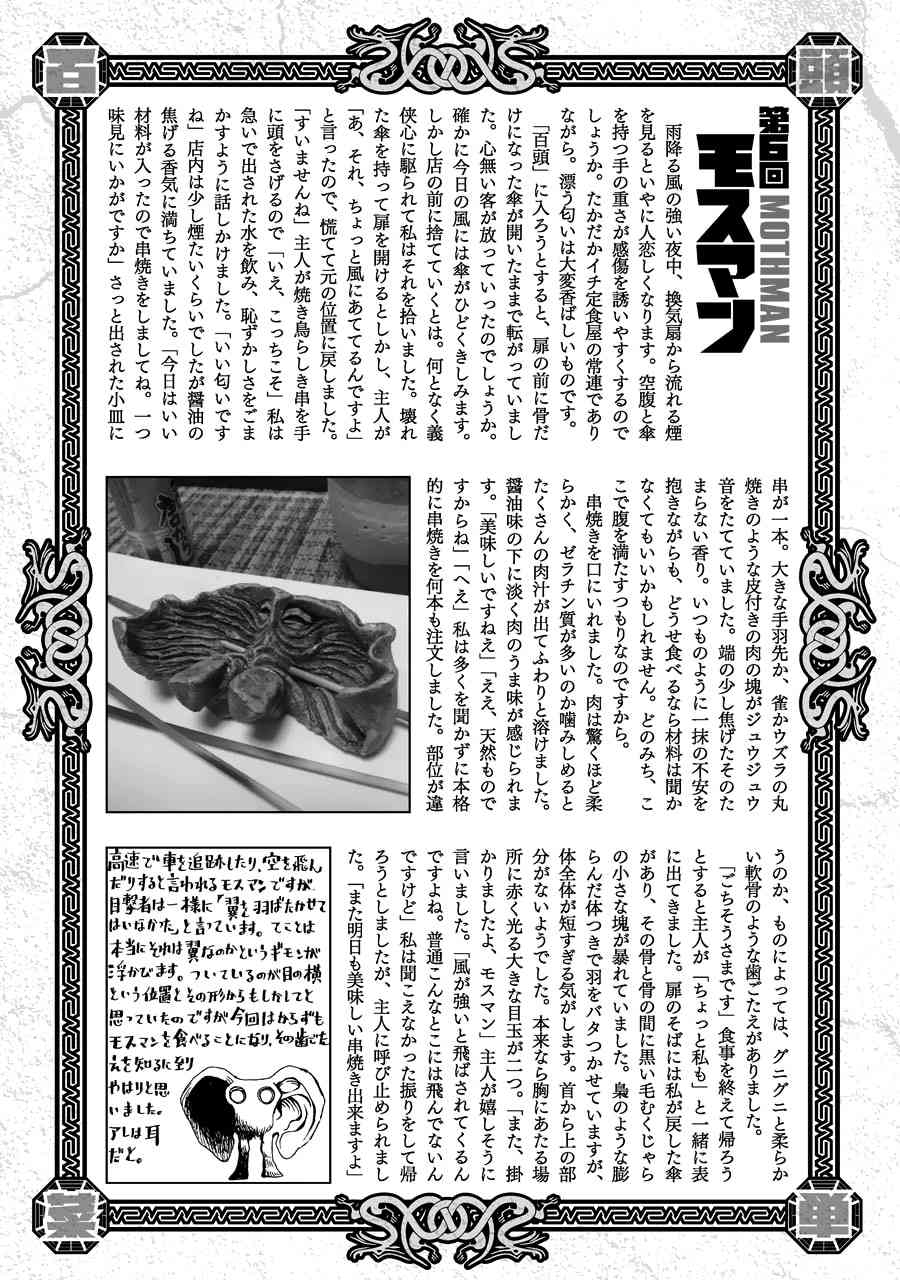 百頭菜単
第6回
モスマン
MOTHMAN
雨降る風の強い夜中、換気扇から流れる煙
を見るといやに人恋しくなります。空腹と傘
を持つ手の重さが感傷を誘いやすくするので
しょうか。たかだかイチ定食屋の常連であり
ながら。漂う匂いは大変香ばしいものです。
「百頭」に入ろうとすると、扉の前に骨だ
けになった傘が開いたままで転がっていまし
た。心無い客が放っていったのでしょうか。
確かに今日の風には傘がひどくきしみます。
しかし店の前に捨てていくとは。何となく義
侠心に駆られて私はそれを拾いました。壊れ
た傘を持って扉を開けるとしかし、主人が
「あ、それ、ちょっと風にあててるんですよ」
と言ったので、慌てて元の位置に戻しました。
「すいませんね」主人が焼き鳥らしき串を手
に頭をさげるので「いえ、こっちこそ」私は
急いで出された水を飲み、恥ずかしさをごま
かすように話しかけました。「いい匂いです
ね」店内は少し煙たいくらいでしたが醤油の
焦げる香気に満ちていました。「今日はいい
材料が入ったので串焼きをしましてね。一つ
味見にいかがですか」さっと出された小皿に
串が一本。大きな手羽先か、雀かウズラの丸
焼きのような皮付きの肉の塊がジュウジュウ
音をたてていました。端の少し焦げたそのた
まらない香り。いつものように一抹の不安を
抱きながらも、どうせ食べるなら材料は聞か
なくてもいいかもしれません。どのみち、こ
こで腹を満たすつもりなのですから。
串焼きを口にいれました。肉は驚くほど柔
らかく、ゼラチン質が多いのか噛みしめると
たくさんの肉汁が出てふわりと溶けました。
醤油味の下に淡く肉のうま味が感じられま
す。「美味しいですねえ」「ええ、天然もので
すからね」「へえ」私は多くを聞かずに本格
的に串焼きを何本も注文しました。部位が違
うのか、ものによっては、グニグニと柔らか
い軟骨のような歯ごたえがありました。
「ごちそうさまです」食事を終えて帰ろう
とすると主人が「ちょっと私も」と一緒に表
に出てきました。扉のそばには私が戻した傘
があり、その骨と骨の間に黒い毛むくじゃら
の小さな塊が暴れていました。梟のような膨
らんだ体つきで羽をバタつかせていますが、
体全体が短すぎる気がします。首から上の部
分がないようでした。本来なら胸にあたる場
所に赤く光る大きな目玉が二つ。「また、掛
かりましたよ、モスマン」主人が嬉しそうに
言いました。「風が強いと飛ばされてくるん
ですよね。普通こんなとこには飛んでないん
ですけど」私は聞こえなかった振りをして帰
ろうとしましたが、主人に呼び止められまし
た。「また明日も美味しい串焼き出来ますよ」
高速で車を追跡したり、空を飛ん
だりすると言われるモスマンですが
目撃者は一様に「翼を羽ばたかせて
はいなかった」と言っています。てことは
本当にそれは翼なのかというギモンが
浮かびます。ついているのが目の横
という位置とその形からもしかしてと
思っていたのですが今回はからずも
モスマンを食べることになり、その歯ごた
えを知るに到り
やはりと思
いました。
アレは耳
だと。